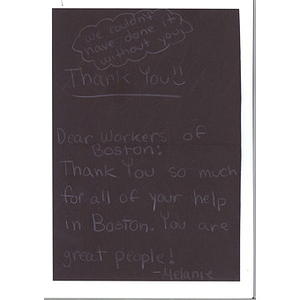 we couldn't
have done it
without you
Thank You!!
Dear Workers of
Boston:
Thank You so much
for all of your help
in Boston. You are
great people!
-Melanie